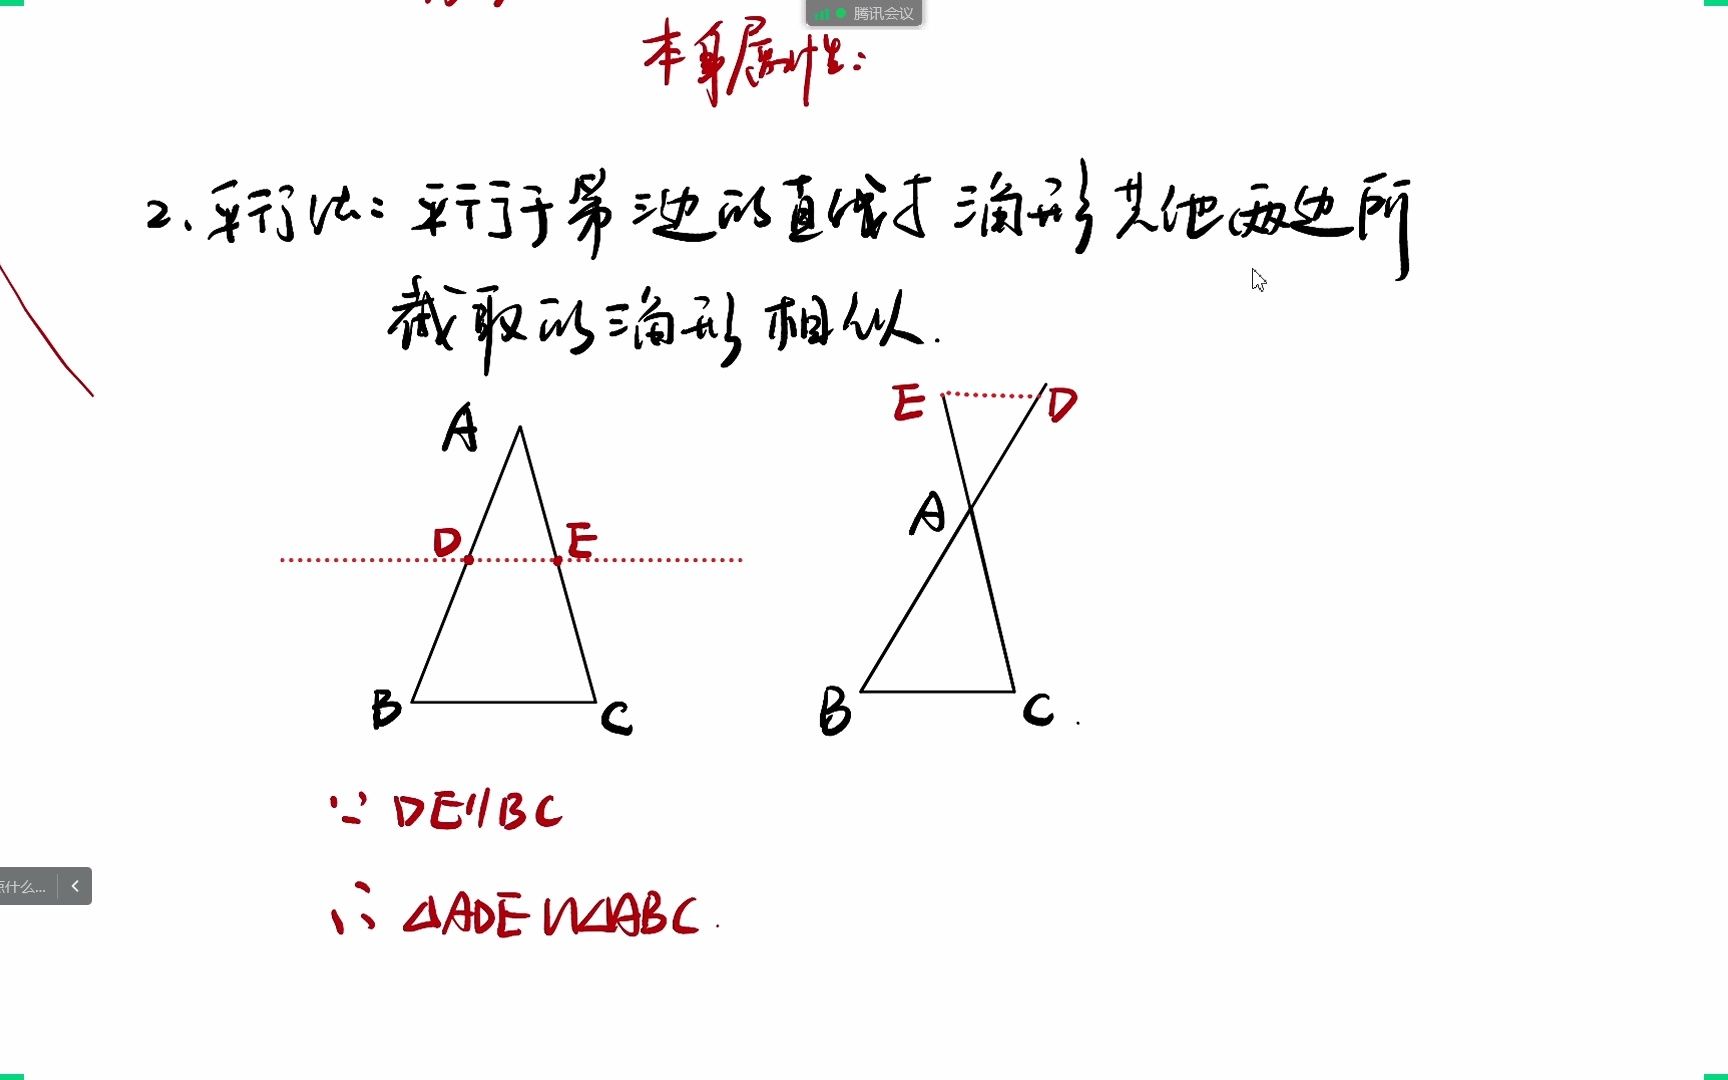 腾讯会议
本身属性:
2、平行法:平行于第三边的直线于三角形其他两边所
截取的三角形相似.
A
E
D
A
D
E
B
C
B
C
∵ DE∥BC
什么...
∴ △ADE∽△ABC.